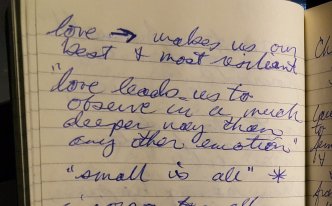 love → makes us our
best & most resilient
"love leads us to
observe in a much
deeper way than
any other emotion"
"small is all" *
Ch